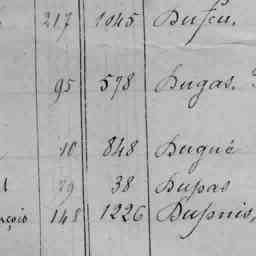 217 1045 Dufeu.
95 578 Dugas.
10 848 Dugué
79 38 Dupas
nçois 148 1226 Dupuis,